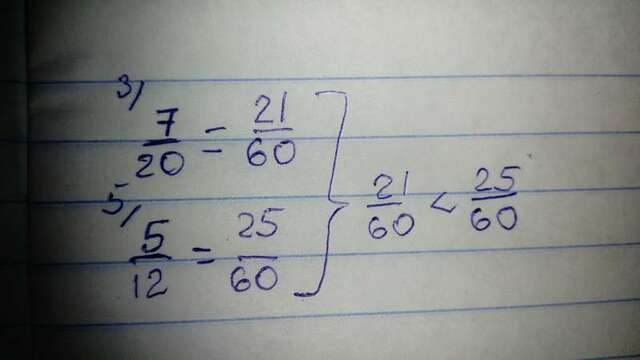 3/ 7/20 = 21/60
5/ 5/12 = 25/60
} 21/60 < 25/60